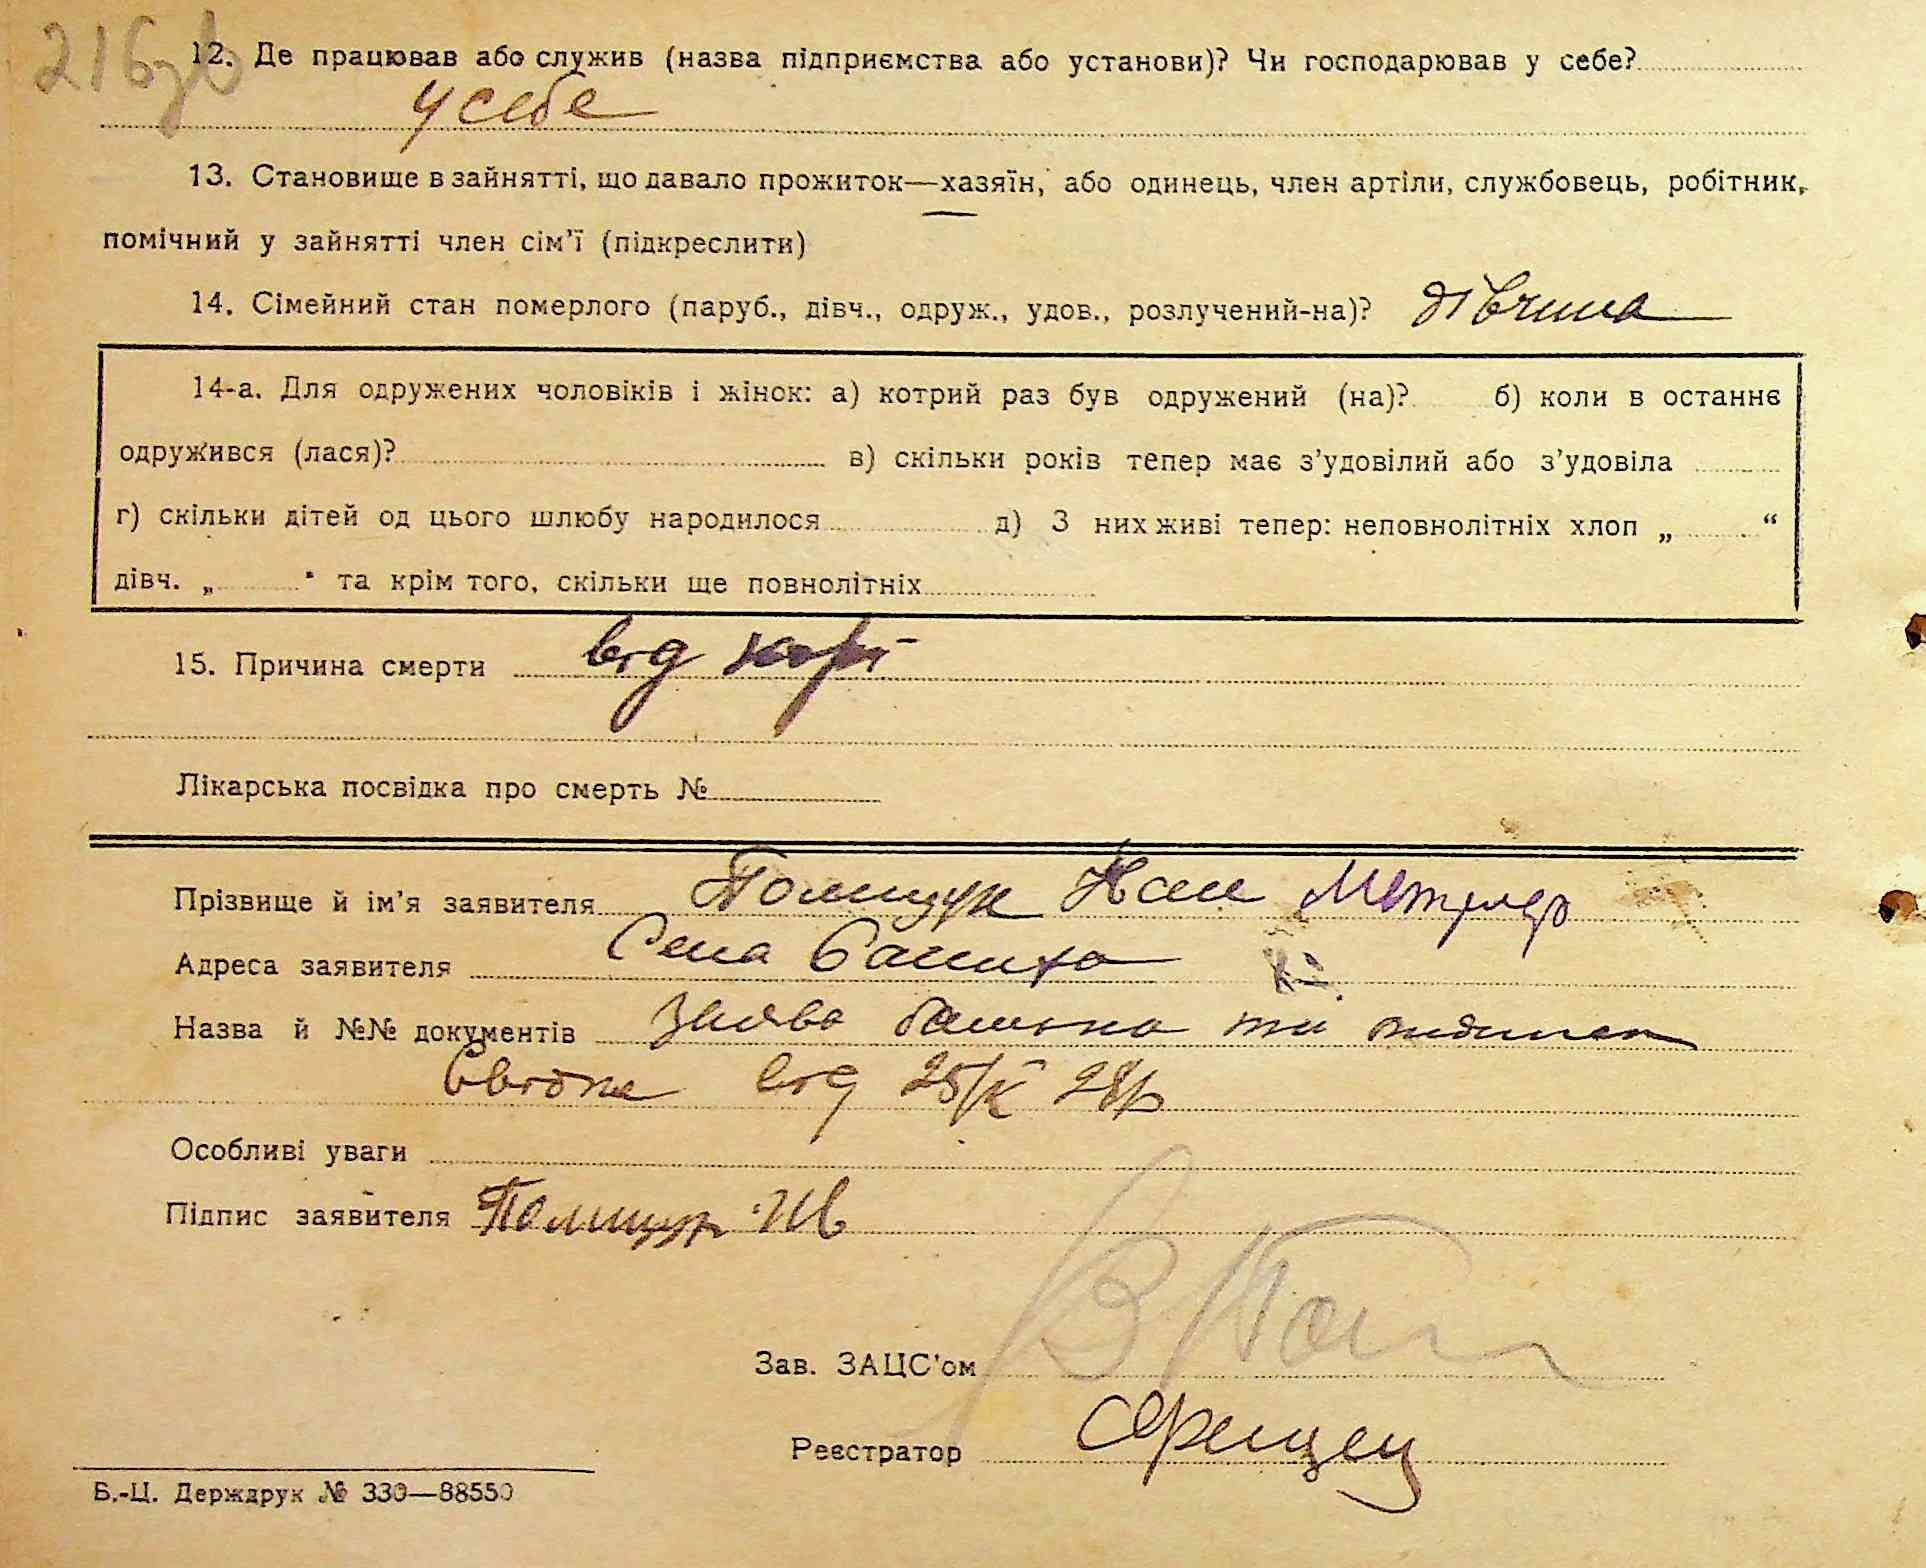 216зв
12. Де працював або служив (назва підприємства або установи)? Чи господарював у себе?
у себе
13. Становище в зайнятті, що давало прожиток—хазяїн, або одинець, член артіли, службовець, робітник,
помічний у зайнятті член сім’ї (підкреслити)
14. Сімейний стан померлого (паруб., дівч., одруж., удов., розлучений-на)? дівчина
14-а. Для одружених чоловіків і жінок: а) котрий раз був одружений (на)? б) коли в останнє
одружився (лася)? в) скільки років тепер має з’удовілий або з’удовіла
г) скільки дітей од цього шлюбу народилося д) З них живі тепер: неповнолітніх хлоп „ “
дівч. „ “ та крім того, скільки ще повнолітніх
15. Причина смерти від корі
Лікарська посвідка про смерть №
Прізвище й ім’я заявителя Полищук Иван
Адреса заявителя Села
Назва й №№ документів Заява батька та
від 25/Х 28р
Особливі уваги
Підпис заявителя Полищук Ив
Зав. ЗАЦС’ом
Реєстратор
Б.-Ц. Держдрук № 330—88550